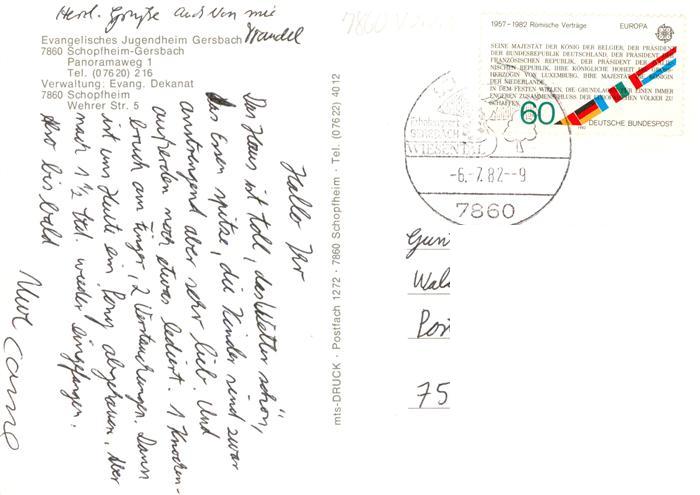 Herzl. Grüße auch von mir
Wandel
Evangelisches Jugendheim Gersbach
7860 Schopfheim-Gersbach
Panoramaweg 1
Tel. (07620) 216
Verwaltung: Evang. Dekanat
7860 Schopfheim
Wehrer Str. 5
Hallo Ihr
Das Haus ist toll, das Wetter schön,
das Essen spitze, die Kinder sind zwar
anstrengend aber sehr lieb und
außerdem noch etwas lediert. 1 Knochen-
bruch am Finger, 2 Verstauchungen. Dann
ist uns Heute ein Pony abgehauen, aber
nach 1 1/2 Std. wieder eingefangen.
Also bis bald
mts-DRUCK · Postfach 1272 · 7860 Schopfheim · Tel. (07622) 4012
7860
1957-1982 Römische Verträge EUROPA
SEINE MAJESTÄT DER KÖNIG DER BELGIER, DER PRÄSIDENT
DER BUNDESREPUBLIK DEUTSCHLAND, DER PRÄSIDENT DER
FRANZÖSISCHEN REPUBLIK, DER PRÄSIDENT DER ITALIE-
NISCHEN REPUBLIK, IHRE KÖNIGLICHE HOHEIT
HERZOGIN VON LUXEMBURG, IHRE MAJESTÄT KÖNIGIN
DER NIEDERLANDE
IN DEM FESTEN WILLEN, DIE GRUNDLAGEN FÜR EINEN IMMER
ENGEREN ZUSAMMENSCHLUSS DER EUROPÄISCHEN VÖLKER ZU
SCHAFFEN
60
DEUTSCHE BUNDESPOST
Erholungsort
GERSBACH
WIESENTAL
-6.-7.82--9
7860
Gun
Wal
Pos
75